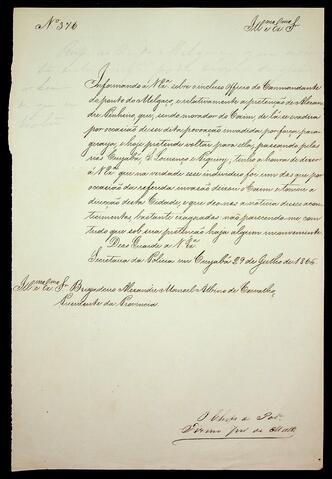 Nº 376
Illmo e Exmo Sr
Informando á V Exa sobre o incluso officio do Commandante
do ponto do Melgaço, e relativamente a pretenção de Alexan
dre Pinheiro, que, sendo morador do Coxim, de lá se evadira
por occasião de ser dita povoação invadida por força para-
guaya, e hoje pretende voltar para ella, passando pelos
rios Cuyabá, S. Lourenço e Piquiry, tenho a honra de dizer
á V Exa que na verdade esse individuo foi um dos que por
occasião da referida invasão deixou o Coxim e tomou a
direcção desta Cidade, e que deo nas noticias desses acon
tecimentos, bastante exageradas não parecendo-me com
tudo que sob sua pretenção haja algum inconveniente.
Deos Guarde a V Exa
Secretaria da Policia em Cuyabá 29 de Julho de 1865.
Illmo e Exmo Sr Brigadeiro Alexandre Manoel Albino de Carvalho,
Presidente da Provincia
O Chefe de Pol
Firmo José de Matt